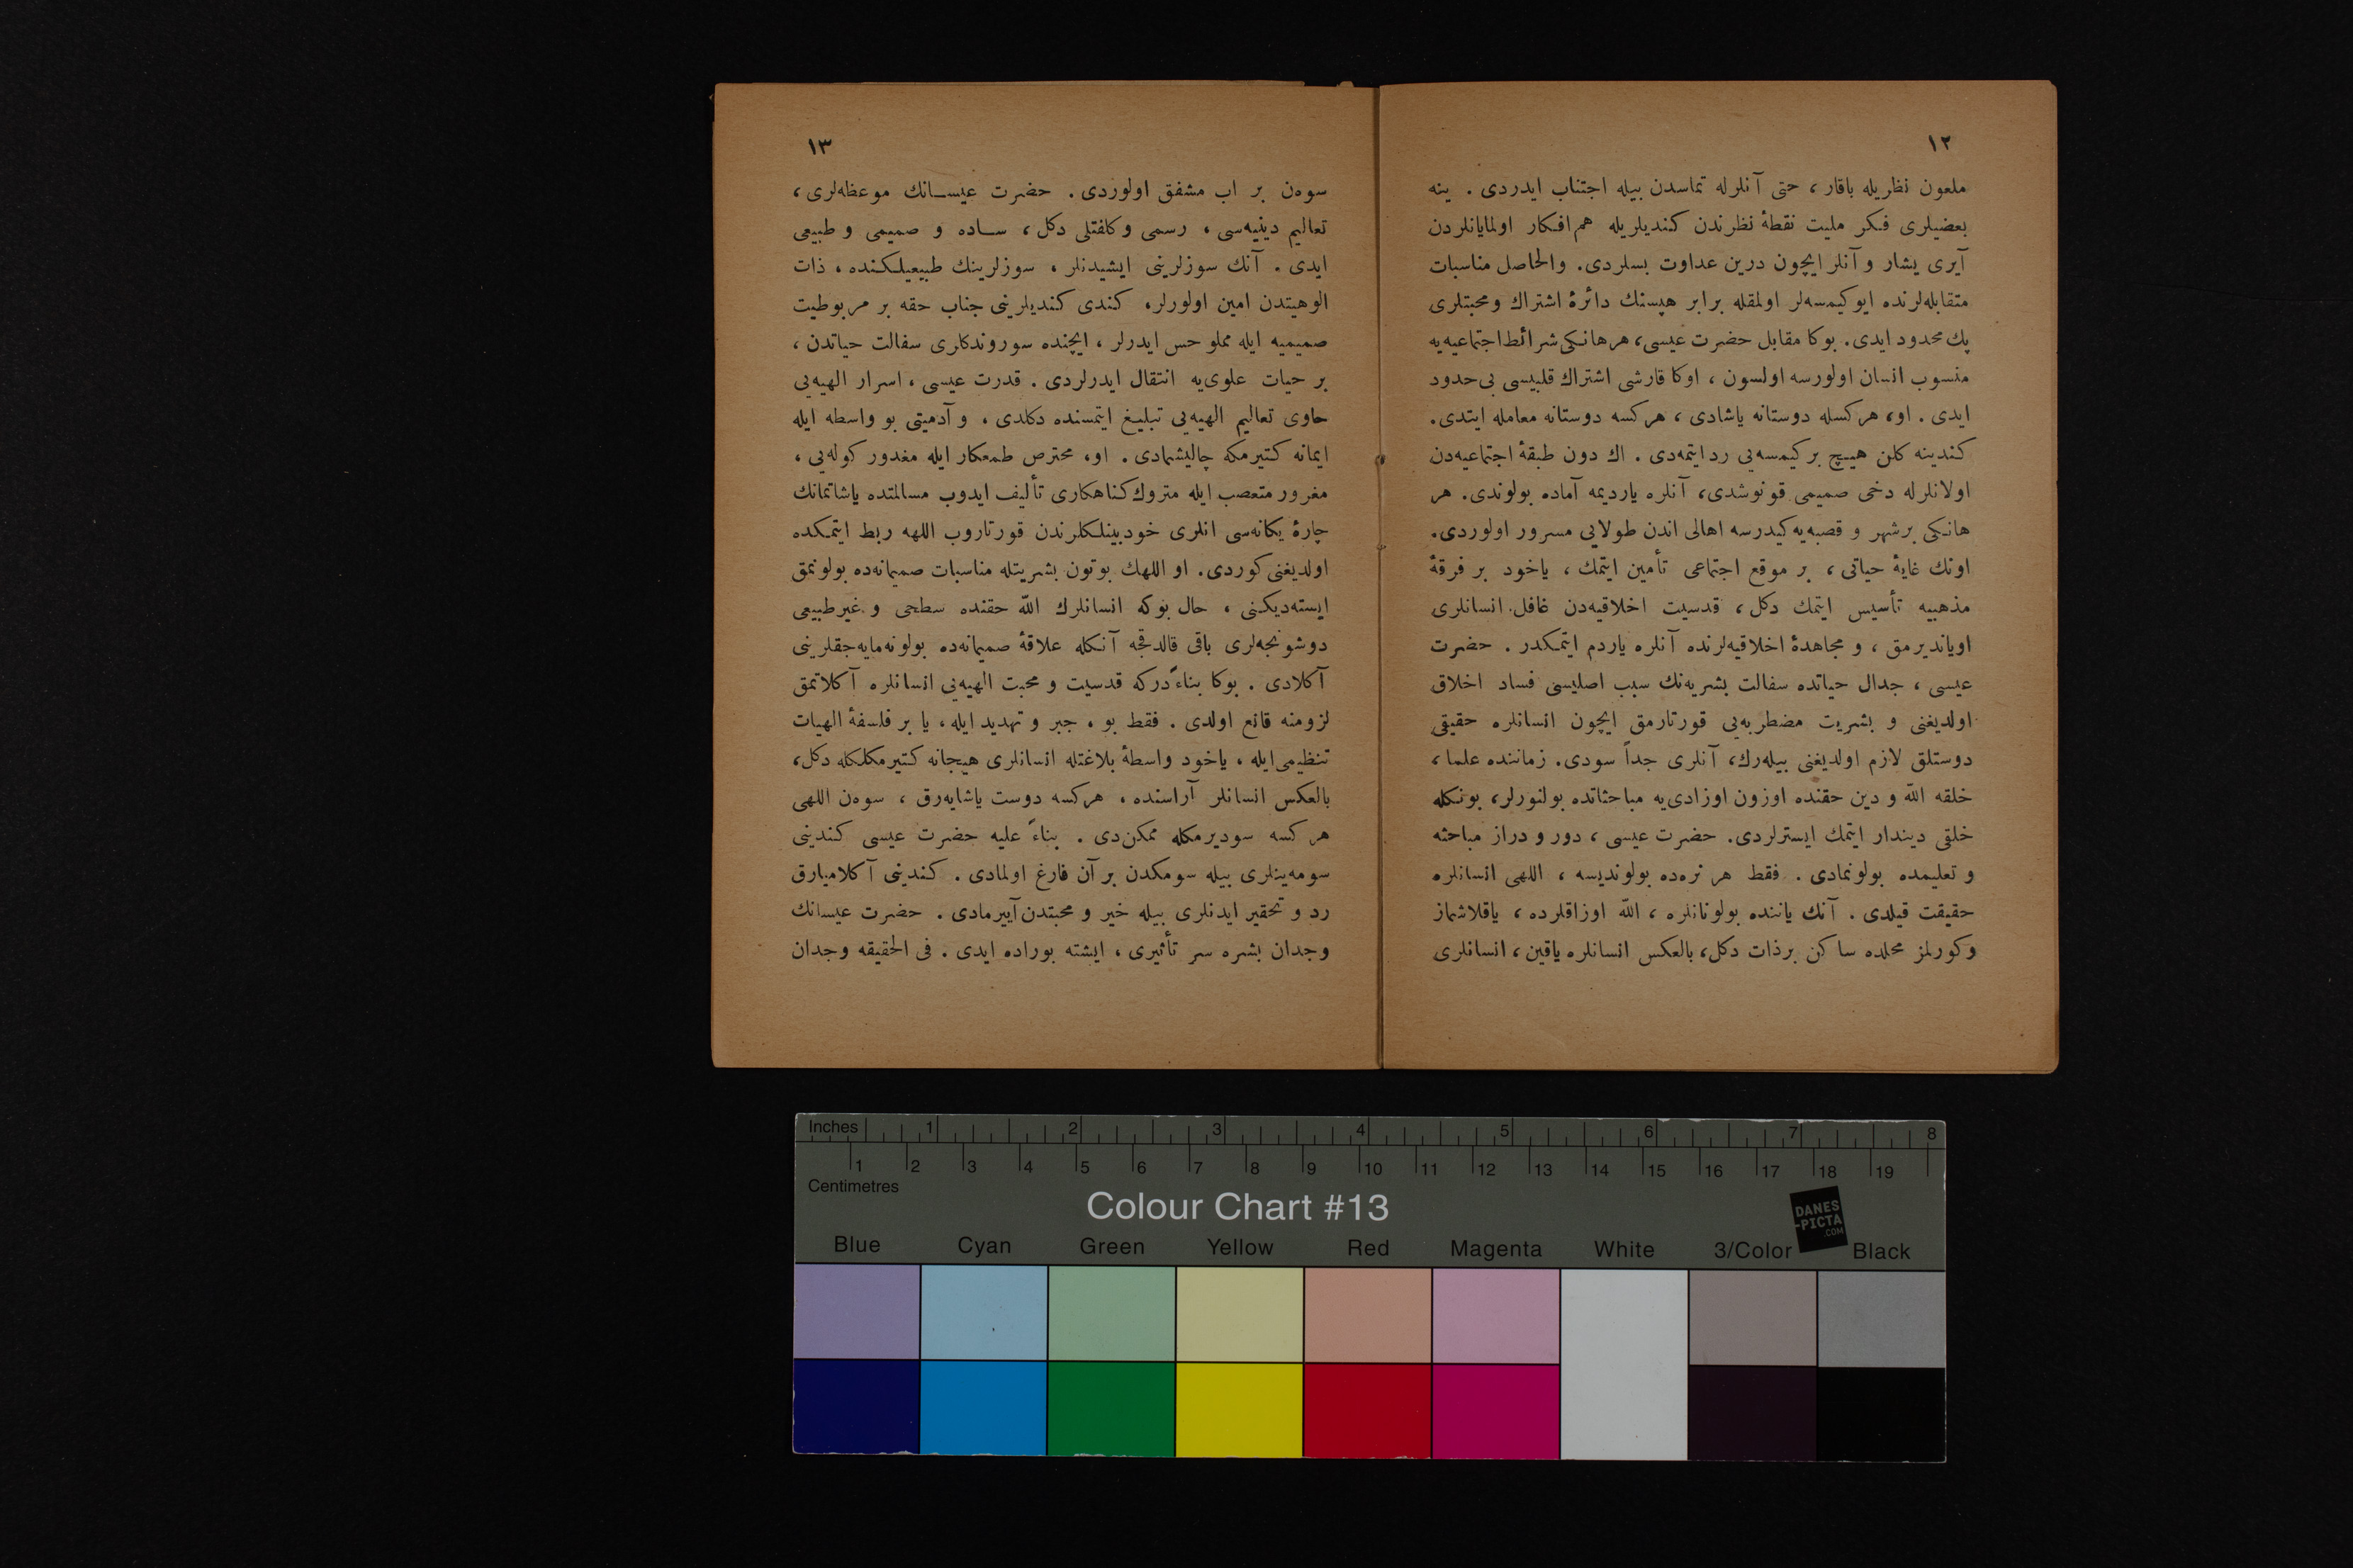 ١٢
ملعون نظریله باقار، حتی آنلرله تماسدن بیله اجتناب ایدردی . ینه
بعضیلری فکر ملیت نقطهٔ نظرندن کندیلریله هم‌افکار اولمایانلردن
آیری یشار و آنلر ایچون درین عداوت بسلردی. والحاصل مناسبات
متقابله‌لرنده ایو کیمسه‌لر اولمقله برابر هپسنك دائرهٔ اشتراك و محبتلری
پك محدود ایدی. بوکا مقابل حضرت عیسی، هر هانکی شرائط اجتماعیه‌یه
منسوب انسان اولورسه اولسون ، اوکا قارشی اشتراك قلبیسی بی‌حدود
ایدی . او، هرکسله دوستانه یاشادی ، هرکسه دوستانه معامله ایتدی.
کندینه کلن هیچ بر کیمسه‌یی رد ایتمه‌دی . اك دون طبقهٔ اجتماعیه‌دن
اولانلرله دخی صمیمی قونوشدی، آنلره یاردیمه آماده بولوندی. هر
هانکی بر شهر و قصبه‌یه کیدرسه اهالی اندن طولایی مسرور اولوردی.
اونك غایهٔ حیاتی ، بر موقع اجتماعی تأمین ایتمك ، یاخود بر فرقهٔ
مذهبیه تأسیس ایتمك دکل ، قدسیت اخلاقیه‌دن غافل انسانلری
اویاندیرمق ، و مجاهدهٔ اخلاقیه‌لرنده آنلره یاردم ایتمکدر . حضرت
عیسی ، جدال حیاتده سفالت بشریه‌نك سبب اصلیسی فساد اخلاق
اولدیغنی و بشریت مضطربه‌یی قورتارمق ایچون انسانلره حقیقی
دوستلق لازم اولدیغنی بیله‌رك، آنلری جداً سودی. زماننده علما ،
خلقه الله و دین حقنده اوزون اوزادی‌یه مباحثاتده بولنورلر، بونکله
خلقی دیندار ایتمك ایسترلردی. حضرت عیسی ، دور و دراز مباحثه
و تعلیمده بولونمادی . فقط هر نره‌ده بولوندیسه ، اللهی انسانلره
حقیقت قیلدی . آنك یاننده بولونانلره ، الله اوزاقلرده ، یاقلاشماز
وکورلمز محلده ساکن برذات دکل، بالعکس انسانلره یاقین ، انسانلری
١٣
سوه‌ن بر اب مشفق اولوردی . حضرت عیسانك موعظه‌لری ،
تعالیم دینیه‌سی ، رسمی و کلفتلی دکل ، ساده و صمیمی و طبیعی
ایدی . آنك سوزلرینی ایشیدنلر ، سوزلرینك طبیعیلکنده ، ذات
الوهیتدن امین اولورلر، کندی کندیلرینی جناب حقه بر مربوطیت
صمیمیه ایله مملو حس ایدرلر ، ایچنده سوروندکلری سفالت حیاتدن ،
بر حیات علوی‌یه انتقال ایدرلردی . قدرت عیسی ، اسرار الهیه‌یی
حاوی تعالیم الهیه‌یی تبلیغ ایتمسنده دکلدی ، و آدمیتی بو واسطه ایله
ایمانه کتیرمکه چالیشمادی . او، محترص طمعکار ایله مغدور کوله‌یی ،
مغرور متعصب ایله متروك کناهکاری تألیف ایدوب مسالمتده یاشاتمانك
چارهٔ یکانه‌سی انلری خودبینلکلرندن قورتاروب اللهه ربط ایتمکده
اولدیغنی کوردی. او اللهك بوتون بشریتله مناسبات صمیمانه‌ده بولونمق
ایسته‌دیکنی ، حال بوکه انسانلرك الله حقنده سطحی و غیر طبیعی
دوشونجه‌لری باقی قالدقجه آنکله علاقهٔ صمیمانه‌ده بولونه‌مایه‌جقلرینی
آکلادی . بوکا بناءً درکه قدسیت و محبت الهیه‌یی انسانلره آکلاتمق
لزومنه قانع اولدی . فقط بو ، جبر و تهدید ایله ، یا بر فلسفهٔ الهیات
تنظیمی‌ایله ، یاخود واسطهٔ بلاغتله انسانلری هیجانه کتیرمکلکله دکل،
بالعکس انسانلر آراسنده ، هرکسه دوست یاشایه‌رق ، سوه‌ن اللهی
هرکسه سودیرمکله ممکن‌دی . بناءً علیه حضرت عیسی کندینی
سومه‌ینلری بیله سومکدن بر آن فارغ اولمادی . کندینی آکلامیارق
رد و تحقیر ایدنلری بیله خیر و محبتدن آییرمادی . حضرت عیسانك
وجدان بشره سر تأثیری ، ایشته بوراده ایدی . فی الحقیقه وجدان
Inches 1 2 3 4 5 6 7 8
1 2 3 4 5 6 7 8 9 10 11 12 13 14 15 16 17 18 19
Centimetres
Colour Chart #13
DANES
-PICTA
.COM
Blue Cyan Green Yellow Red Magenta White 3/Color Black